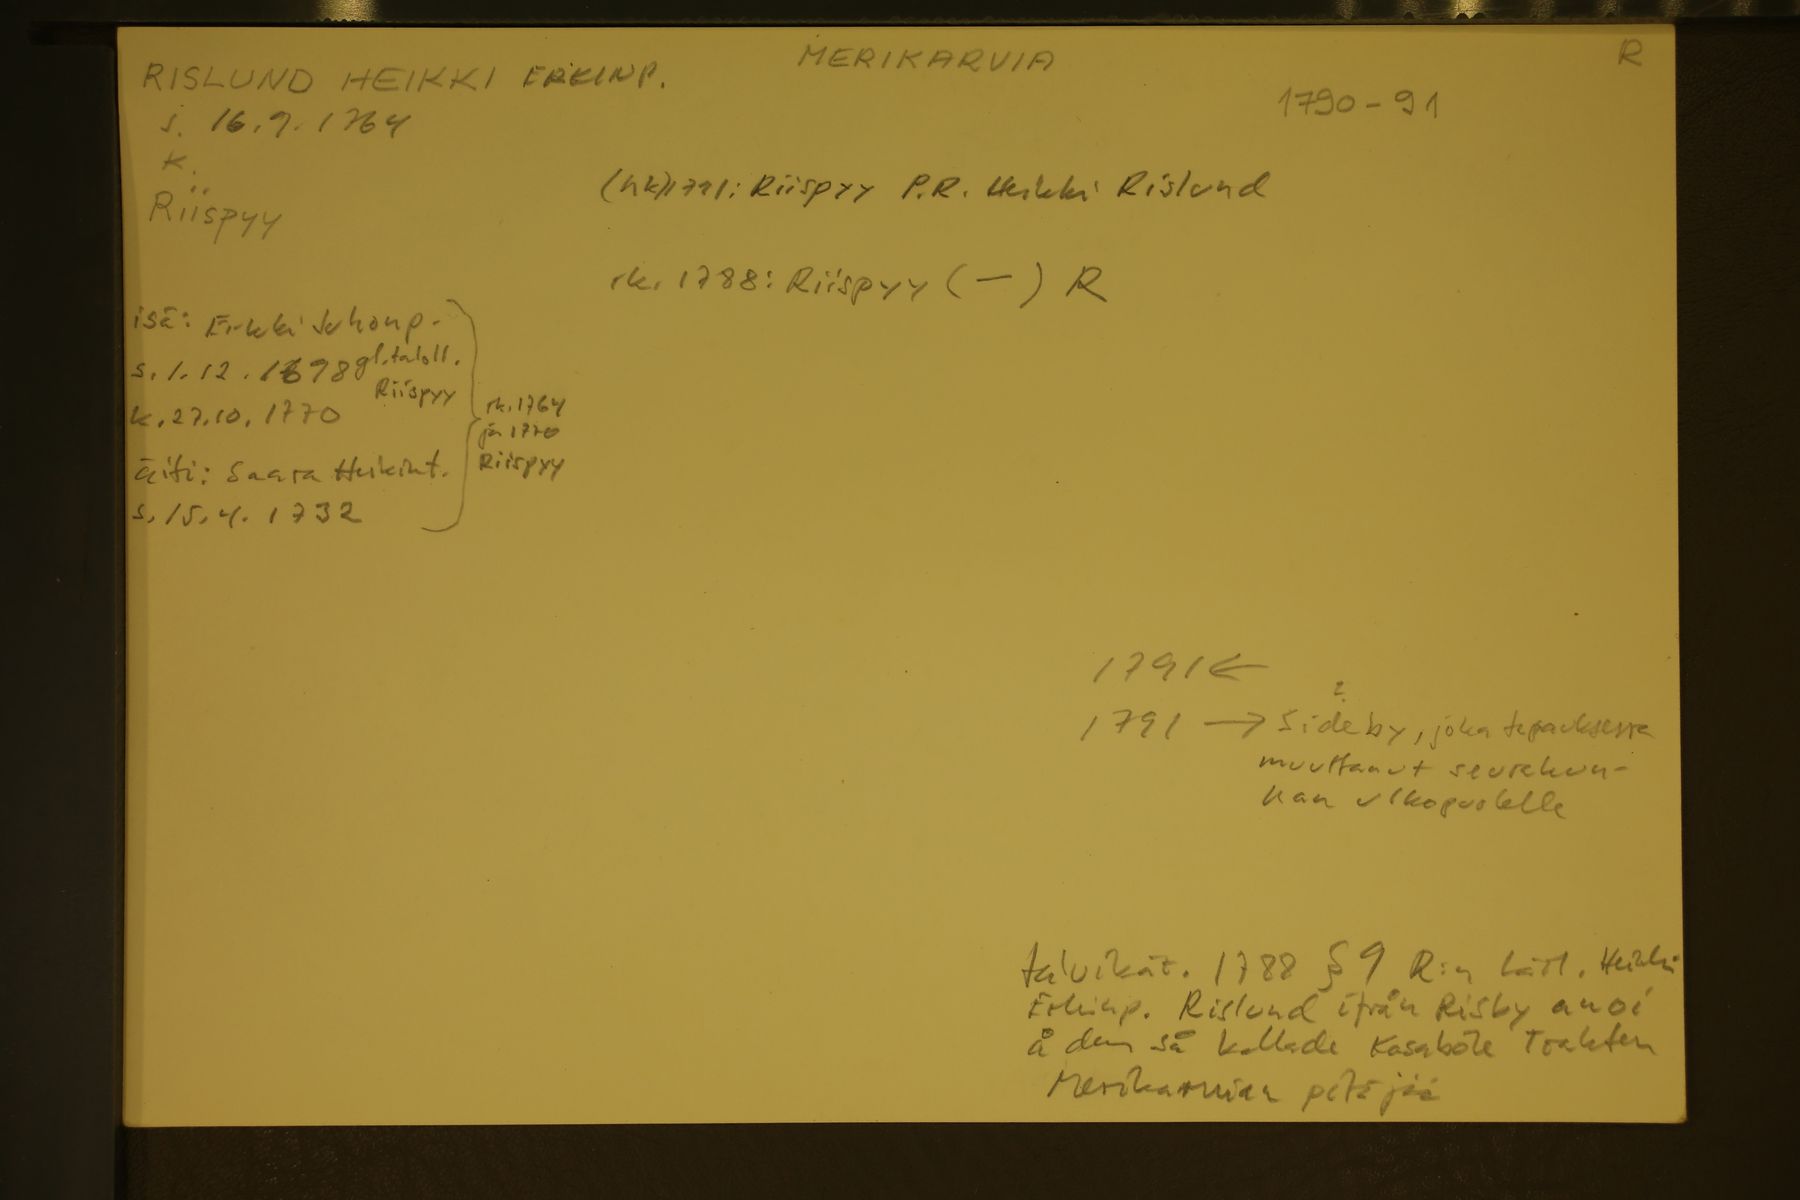 MERIKARVIA
R
RISLUND HEIKKI ERKINP.
1790-91
s. 16.9.1764
k.
Riispyy
(hk)1791: Riispyy P.R. Heikki Rislund
rk. 1788: Riispyy (—) R
isä: Erkki Juhonp.
s. 1.12.1698 gl. taloll.
Riispyy
k. 27.10.1770
äiti: Saara Heikint.
s. 15.4.1732
rk. 1764
ja 1770
Riispyy
1791 ←
?
1791 → Sideby, joka tapauksessa
muuttanut seurakun-
nan ulkopuolelle
talvikär. 1788 § 9 R:n Heikki
Erkinp. Rislund ifrån Risby anoi
å den så kallade Kasaböle Trakten
Merikarvian pitäjää